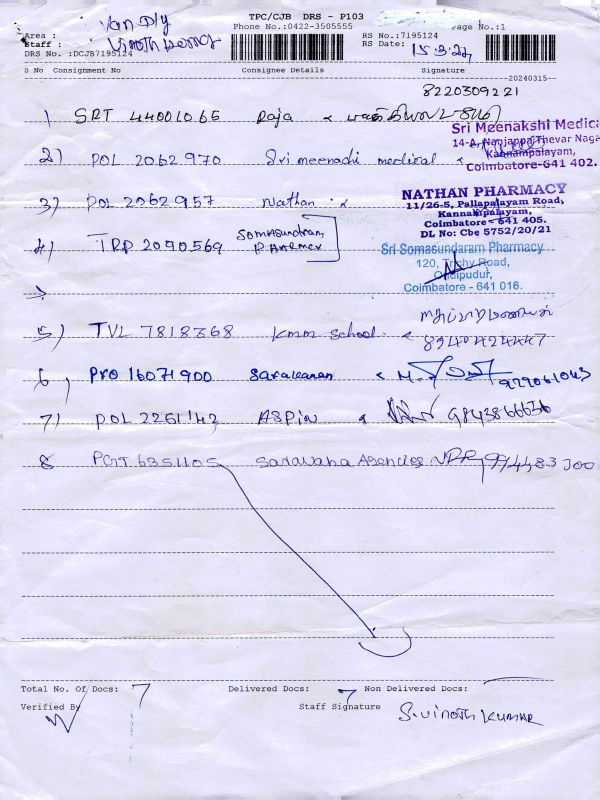 TPC/CJB DRS - P103
Van Dly
Area :
Phone No.:0422-3505555
Page No.:1
RS No.:7195124
Staff :
RS Date: 15.3.24
DRS No. :DCJB7195124
S No Consignment No Consignee Details Signature
20240315
8220309221
1 SRT 44001065 Raja
Sri Meenakshi Medica
14-A, Nanjappa Thevar Naga
Kannampalayam,
Coimbatore-641 402.
2) POL 2062970 Sri meenachi medical
NATHAN PHARMACY
11/26-5, Pallapalayam Road,
Kannampalayam,
Coimbatore - 641 405.
DL No: Cbe 5752/20/21
3) POL 2062957 Nathan
4) TRP 2090569 Somasundram
Sri Somasundaram Pharmacy
120, Trichy Road,
Ondipudur,
Coimbatore - 641 016.
5) TVL 7818368 Kmm School
8940424447
6) PRO 16071900 Saravanan
9229061043
7) POL 2261142 ASPIN 9843866636
8 PGT 6351105 Saravana Agencies
Total No. Of Docs: 7 Delivered Docs: 7 Non Delivered Docs:
Verified By Staff Signature S.Vinoth Kumar